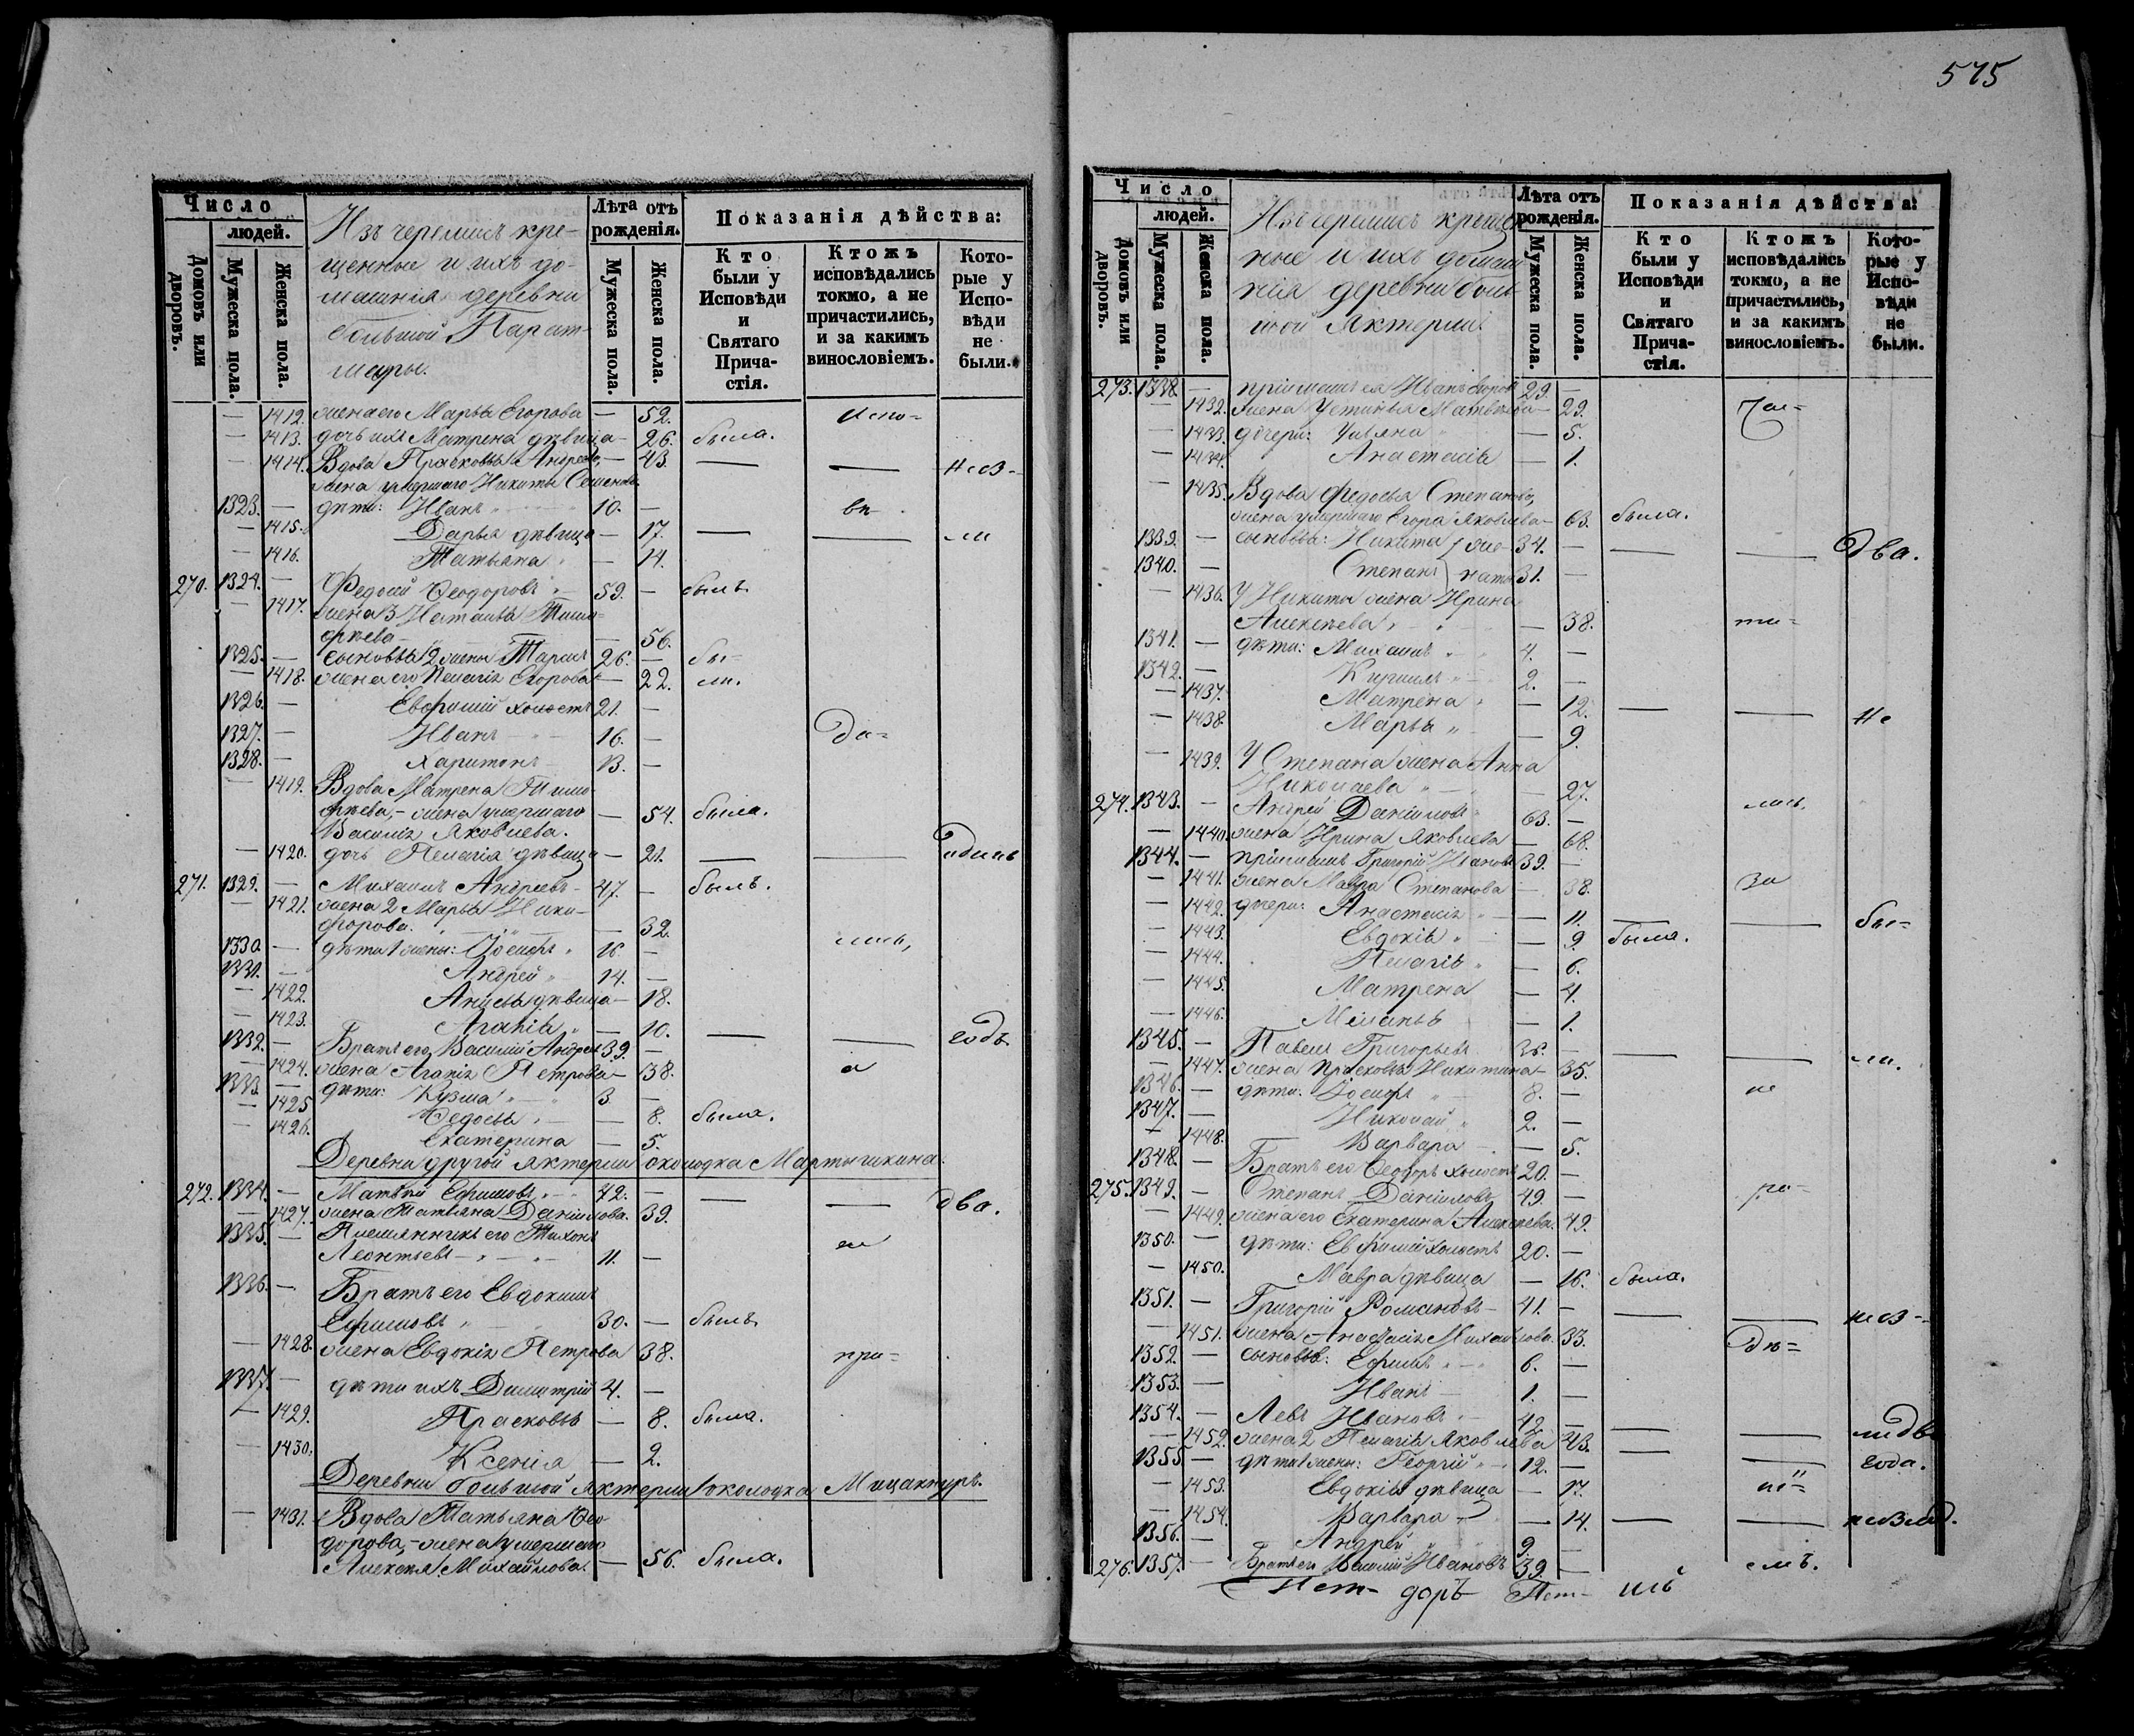 575
Число
людей.
Домовъ или дворовъ.
Мужеска пола.
Женска пола.
Изъ черемисъ кре-
щенные и ихъ до-
машнія деревни
большой Парат-
мары.
Лѣта отъ
рожденія.
Мужеска пола.
Женска пола.
Показанія дѣйства:
Кто
были у
Исповѣди
и
Святаго
Прича-
стія.
Ктожъ
исповѣдались
токмо, а не
причастились,
и за какимъ
винословіемъ.
Кото-
рые у
Испо-
вѣди
не
были.
— 1412. жена его Марья Егорова — 52. испо-
— 1413. дочь ихъ Матрена дѣвица — 26. была.
— 1414. Вдова Прасковья Андреева, — 43. — — нев-
жена умершаго Никиты Семенова
1323. — дѣти: Иванъ 10. — вѣ-
— 1415. Дарья дѣвица — 17. — — ли
— 1416. Татьяна — 14.
270. 1324. — Федосій Ѳеодоровъ 59. — былъ
— 1417. жена 3 Наталья Тимо-
фѣева — 56.
1325. — сыновья 2 жены Тарасъ 26. — бы-
— 1418. жена его Пелагія Егорова — 22. ли.
1326. — Евфимій холостъ 21. —
1327. — Иванъ 16. — да-
1328. — Харитонъ 13. —
— 1419. Вдова Матрена Тимо-
фѣева, - жена умершаго — 54. была.
Василія Яковлева.
— 1420. дочь Пелагія дѣвица — 21. — — одинъ
271. 1329. — Михаилъ Андреевъ - 47. — былъ.
— 1421. жена 2 Марья Ники-
форова. — 32.
1330. — дѣти 1 жены: Іосифъ 16. — лись,
1331. — Андрей 14. —
— 1422. Анисья дѣвица — 18.
— 1423. Агапія — 10. — — годъ
1332. — Братъ его Василій Андреевъ 39. —
— 1424. жена Агапія Петрова — 38. а
1333. — дѣти: Кузма 3. —
— 1425. Ѳедосья — 8. была.
— 1426. Екатерина — 5.
Деревни другой Яктерли околодка Мартышкина.
272. 1334. — Матвѣй Ефимовъ 42. — — — два.
— 1427. жена Татьяна Даніилова. 39.
1335. — Племянникъ его Тихонъ
Леонтьевъ - 11. — не
1336. — Братъ его Евдокимъ
Ефимовъ 30. — былъ
— 1428. жена Евдокія Петрова 38. при-
1337. — дѣти ихъ Димитрій 4. —
— 1429. Прасковья — 8. была.
— 1430. Ксенія — 2.
Деревни большой Яктерли околодка Мицактуръ.
— 1431. Вдова Татьяна Ѳео-
дорова, - жена умершаго
Алексѣя Михайлова. — 56. была.
Число
людей.
Домовъ или дворовъ.
Мужеска пола.
Женска пола.
Изъ черемисъ крещен-
ные и ихъ домаш-
нія деревни боль-
шой Яктерли.
Лѣта отъ
рожденія.
Мужеска пола.
Женска пола.
Показанія дѣйства:
Кто
были у
Исповѣди
и
Святаго
Прича-
стія.
Ктожъ
исповѣдались
токмо, а не
причастились,
и за какимъ
винословіемъ.
Кото-
рые у
Испо-
вѣди
не
были.
273. 1338. — пріимышъ ея Иванъ Егоровъ 29. —
— 1432. жена Устинья Матвѣева — 29. час-
— 1433. дочери: Ульяна — 5.
— 1434. Анастасія — 1.
— 1435. Вдова Федосья Степанова,
жена умершаго Егора Яковлева - 63. была.
1339. — сыновья: Никита же- 34. — — — два.
1340. — Степанъ наты 31. —
— 1436. У Никиты жена Ирина
Алексѣева — 38. ти-
1341. — дѣти: Михаилъ 4. —
1342. — Кирилъ 2. —
— 1437. Матрена — 12. — — не
— 1438. Марья — 9.
— 1439. У Степана жена Анна
Николаева — 27.
274. 1343. — Андрей Даніиловъ 63. — лись,
— 1440. жена Ирина Яковлева — 68.
1344. — пріимышъ Григорій Ивановъ 39. —
— 1441. жена Мавра Степанова — 38. за
— 1442. дочери: Анастасія — 11. — — бы-
— 1443. Евдокія — 9. была.
— 1444. Пелагія — 6.
— 1445. Матрена — 4.
— 1446. Меланья — 1.
1345. — Павелъ Григорьевъ 36. — — — ли.
— 1447. жена Прасковья Никитина — 35.
1346. — дѣти: Іосифъ 8. — не
1347. — Николай 2. —
— 1448. Варвара — 5.
1348. — Братъ его Ѳеодоръ холостъ 20. —
275. 1349. — Степанъ Даніиловъ 49. — ра-
— 1449. жена его Екатерина Алексѣева. 49.
1350. — дѣти: Евфимій холостъ 20. —
— 1450. Мавра дѣвица — 16. была.
1351. — Григорій Романовъ - 41. — — — нев-
— 1451. жена Анастасія Михайлова 33. дѣ-
1352. — сыновья: Ефимъ 6. —
1353. — Иванъ 1. —
1354. — Левъ Ивановъ 42. — — — ли два
— 1452. жена 2 Пелагія Яковлева 43.
1355. — дѣти 1 жены: Георгій 12. — — года.
— 1453. Евдокія дѣвица — 17. ні-
— 1454. Варвара — 14. — —
1356. — Андрей 9. —
276. 1357. — Братъ его Василій Ивановъ 39. — емъ.